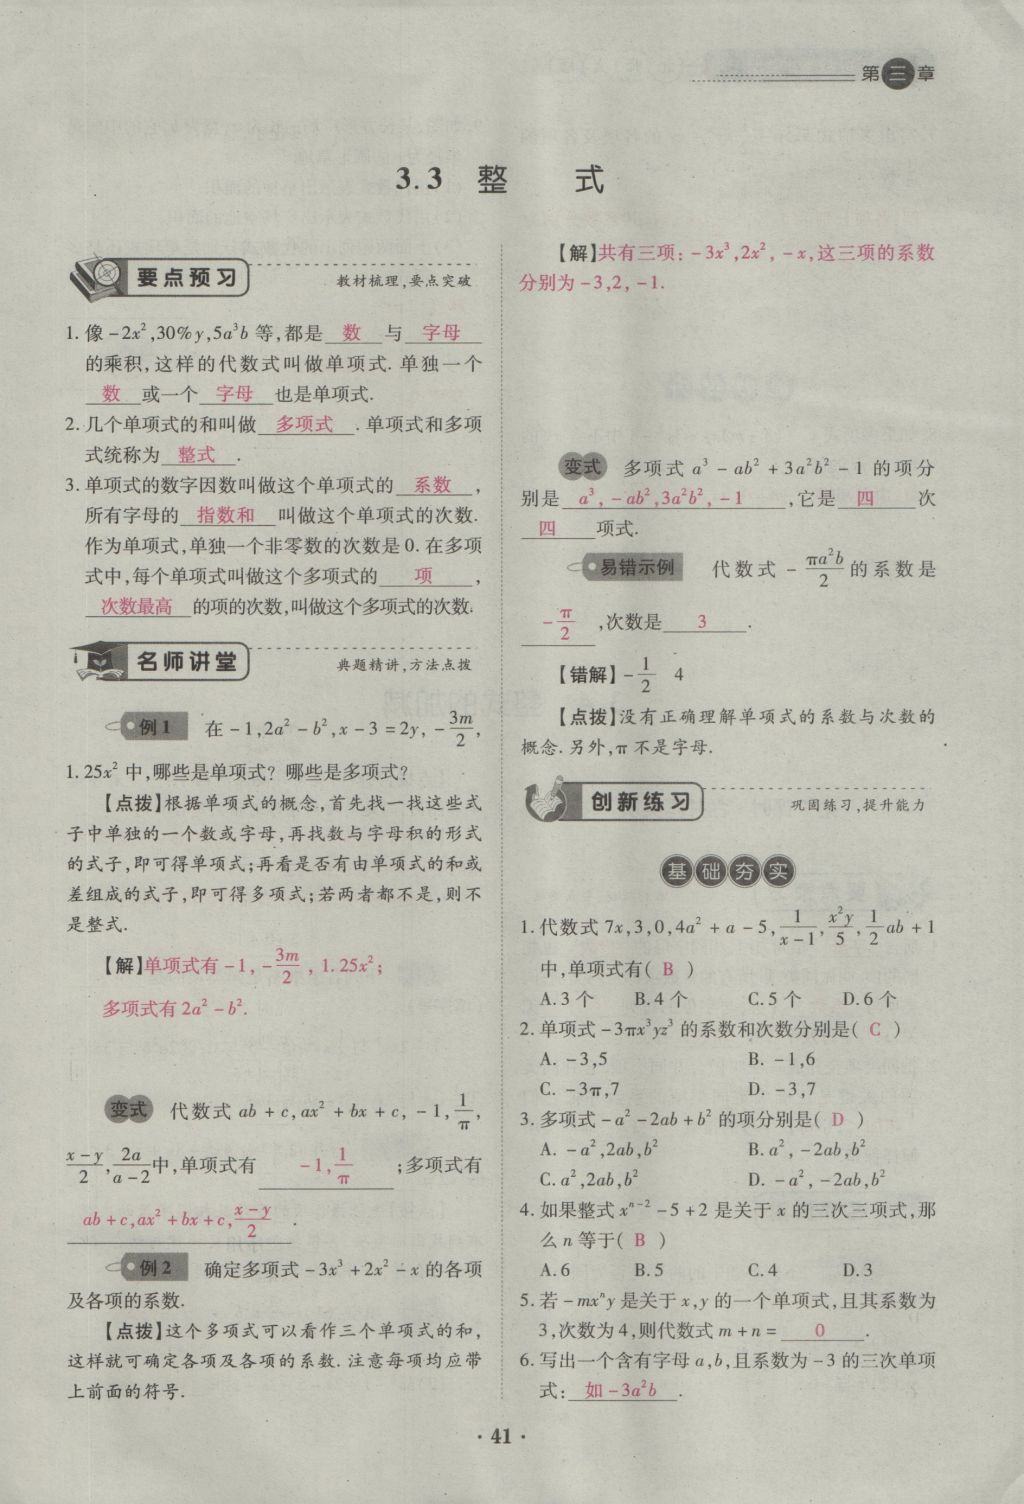 第三章
3.3 整 式
要点预习 教材梳理,要点突破
1. 像 -2x²,30%y,5a³b 等,都是 数 与 字母
的乘积,这样的代数式叫做单项式. 单独一个
数 或一个 字母 也是单项式.
2. 几个单项式的和叫做 多项式 . 单项式和多项
式统称为 整式 .
3. 单项式的数字因数叫做这个单项式的 系数 ,
所有字母的 指数和 叫做这个单项式的次数.
作为单项式,单独一个非零数的次数是 0. 在多项
式中,每个单项式叫做这个多项式的 项 ,
次数最高 的项的次数,叫做这个多项式的次数.
名师讲堂 典题精讲,方法点拨
例1 在 -1,2a² - b²,x - 3 = 2y, - 3m/2,
1. 25x² 中,哪些是单项式? 哪些是多项式?
【点拨】根据单项式的概念,首先找一找这些式
子中单独的一个数或字母,再找数与字母积的形式
的式子,即可得单项式;再看是否有由单项式的和或
差组成的式子,即可得多项式;若两者都不是,则不
是整式.
【解】单项式有 -1, - 3m/2 , 1. 25x²;
多项式有 2a² - b².
变式 代数式 ab + c,ax² + bx + c, -1, 1/π,
x-y/2, 2a/a-2 中,单项式有 -1, 1/π ;多项式有
ab + c,ax² + bx + c, x-y/2 .
例2 确定多项式 -3x³ + 2x² - x 的各项
及各项的系数.
【点拨】这个多项式可以看作三个单项式的和,
这样就可确定各项及各项的系数. 注意每项均应带
上前面的符号.
【解】共有三项: -3x³,2x², -x,这三项的系数
分别为 -3,2, -1.
变式 多项式 a³ - ab² + 3a²b² - 1 的项分
别是 a³, -ab²,3a²b², -1 ,它是 四 次
四 项式.
易错示例 代数式 - πa²b/2 的系数是
- π/2 ,次数是 3 .
【错解】- 1/2 4
【点拨】没有正确理解单项式的系数与次数的
概念. 另外,π 不是字母.
创新练习 巩固练习,提升能力
基础夯实
1. 代数式 7x,3,0,4a² + a - 5, 1/x-1, x²y/5, 1/2 ab + 1
中,单项式有( B )
A. 3 个 B. 4 个 C. 5 个 D. 6 个
2. 单项式 -3πx³yz³ 的系数和次数分别是( C )
A. -3,5 B. -1,6
C. -3π,7 D. -3,7
3. 多项式 -a² - 2ab + b² 的项分别是( D )
A. -a²,2ab,b² B. a², -2ab,b²
C. a²,2ab,b² D. -a², -2ab,b²
4. 如果整式 xⁿ⁻² - 5 + 2 是关于 x 的三次三项式,那
么 n 等于( B )
A. 6 B. 5 C. 4 D. 3
5. 若 -mxⁿy 是关于 x,y 的一个单项式,且其系数为
3,次数为 4,则代数式 m + n = 0 .
6. 写出一个含有字母 a,b,且系数为 -3 的三次单项
式: 如 -3a²b .
· 41 ·